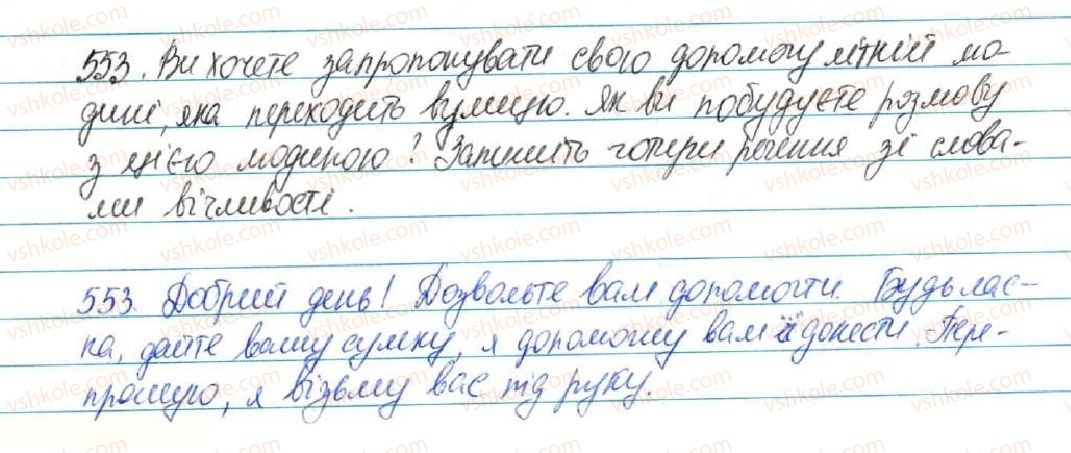 553. Ви хочете запропонувати свою допомогу літній лю-
дині, яка переходить вулицю. Як ви побудуєте розмову
з цією людиною? Запишіть чотири речення зі слова-
ми вічливості.
553. Добрий день! Дозвольте вам допомогти. Будь лас-
ка, дайте вашу сумку, я допоможу вам її донести. Пере-
прошую, я візьму вас під руку.